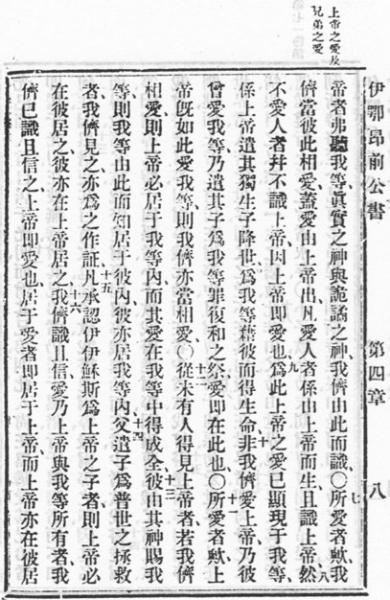 伊鄂昂前公書 第四章 八
上帝之愛及
兄弟之愛
帝者弗聽我等眞實之神與詭譎之神我儕由此而識○七所愛者歟我
儕當彼此相愛蓋愛由上帝出凡愛人者係由上帝而生且識上帝八然
不愛人者幷不識上帝因上帝即愛也九爲此上帝之愛已顯現于我等
係上帝遣其獨生子降世爲我等藉彼而得生命十非我儕愛上帝乃彼
曾愛我等乃遣其子爲我等罪復和之祭愛即在此也○十一所愛者歟上
帝旣如此愛我等則我儕亦當相愛○十二從未有人得見上帝者若我儕
相愛則上帝必居于我等內而其愛在我等中得成全十三彼由其神賜我
等則我等由此而知居于彼內彼亦居我等內十四父遣子爲普世之拯救
者我儕見之亦爲之作証十五凡承認伊伊穌斯爲上帝之子者則上帝必
在彼居之彼亦在上帝居之十六我儕識且信愛乃上帝與我等所有者我
儕已識且信之上帝即愛也居于愛者即居于上帝而上帝亦在彼居